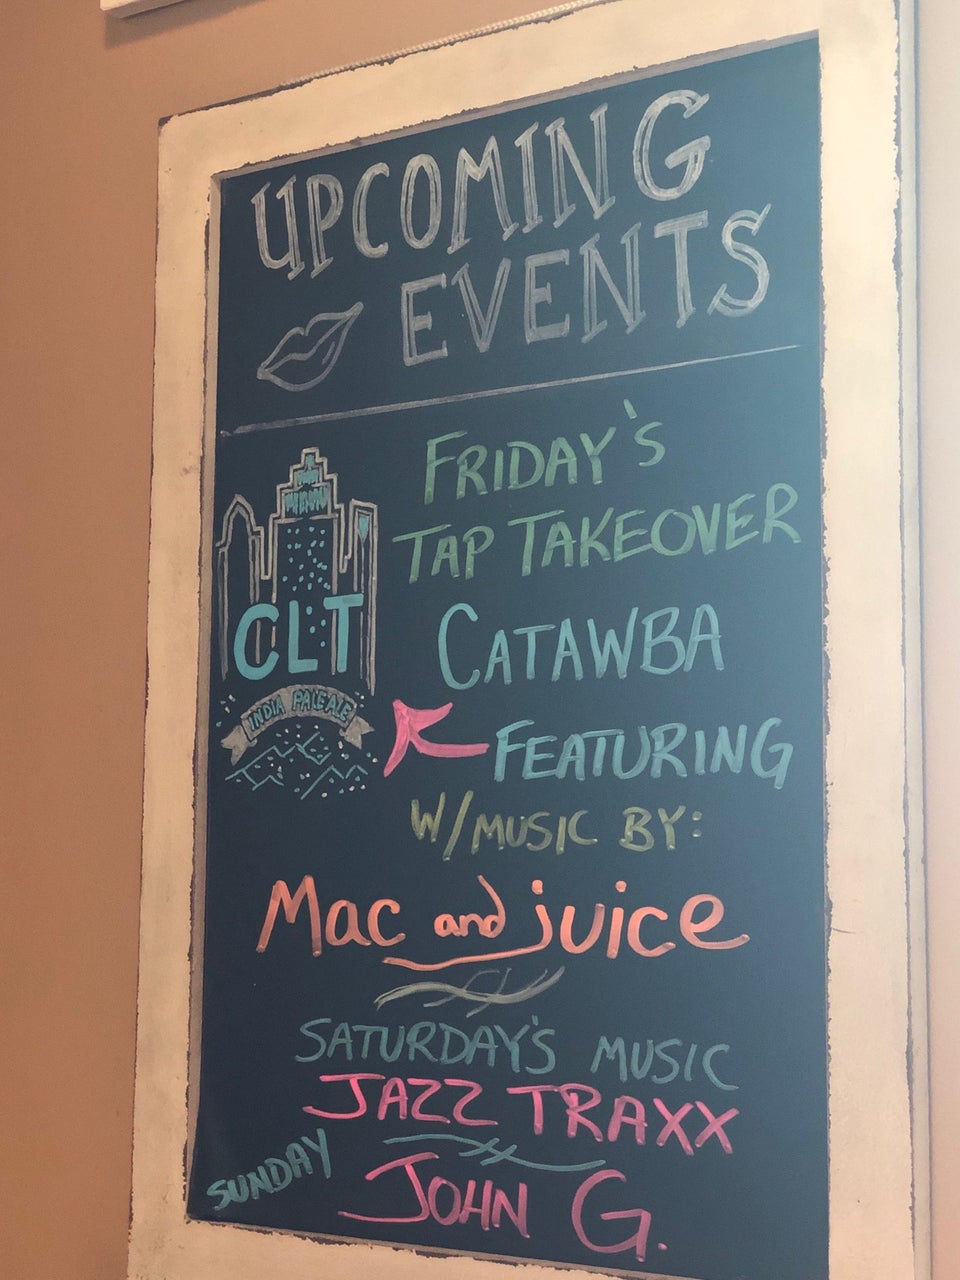 UPCOMING
EVENTS
FRIDAY'S
TAP TAKEOVER
CLT
CATAWBA
INDIA PALE ALE
FEATURING
W/MUSIC BY:
Mac and juice
SATURDAY'S MUSIC
JAZZ TRAXX
SUNDAY
JOHN G.